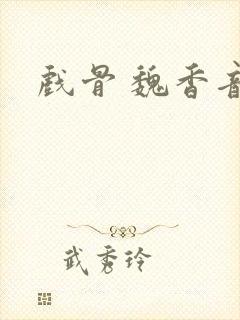 戏骨 魏香音
武秀玲